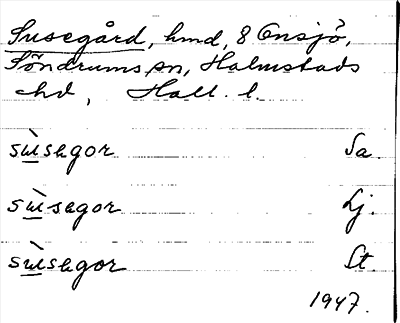 Susegård, hmd, 8 Onsjö,
Söndrums sn, Halmstads
hd, Hall. l.
sùsegor Sa.
sùsegor Lj.
sùsegor St.
1947.